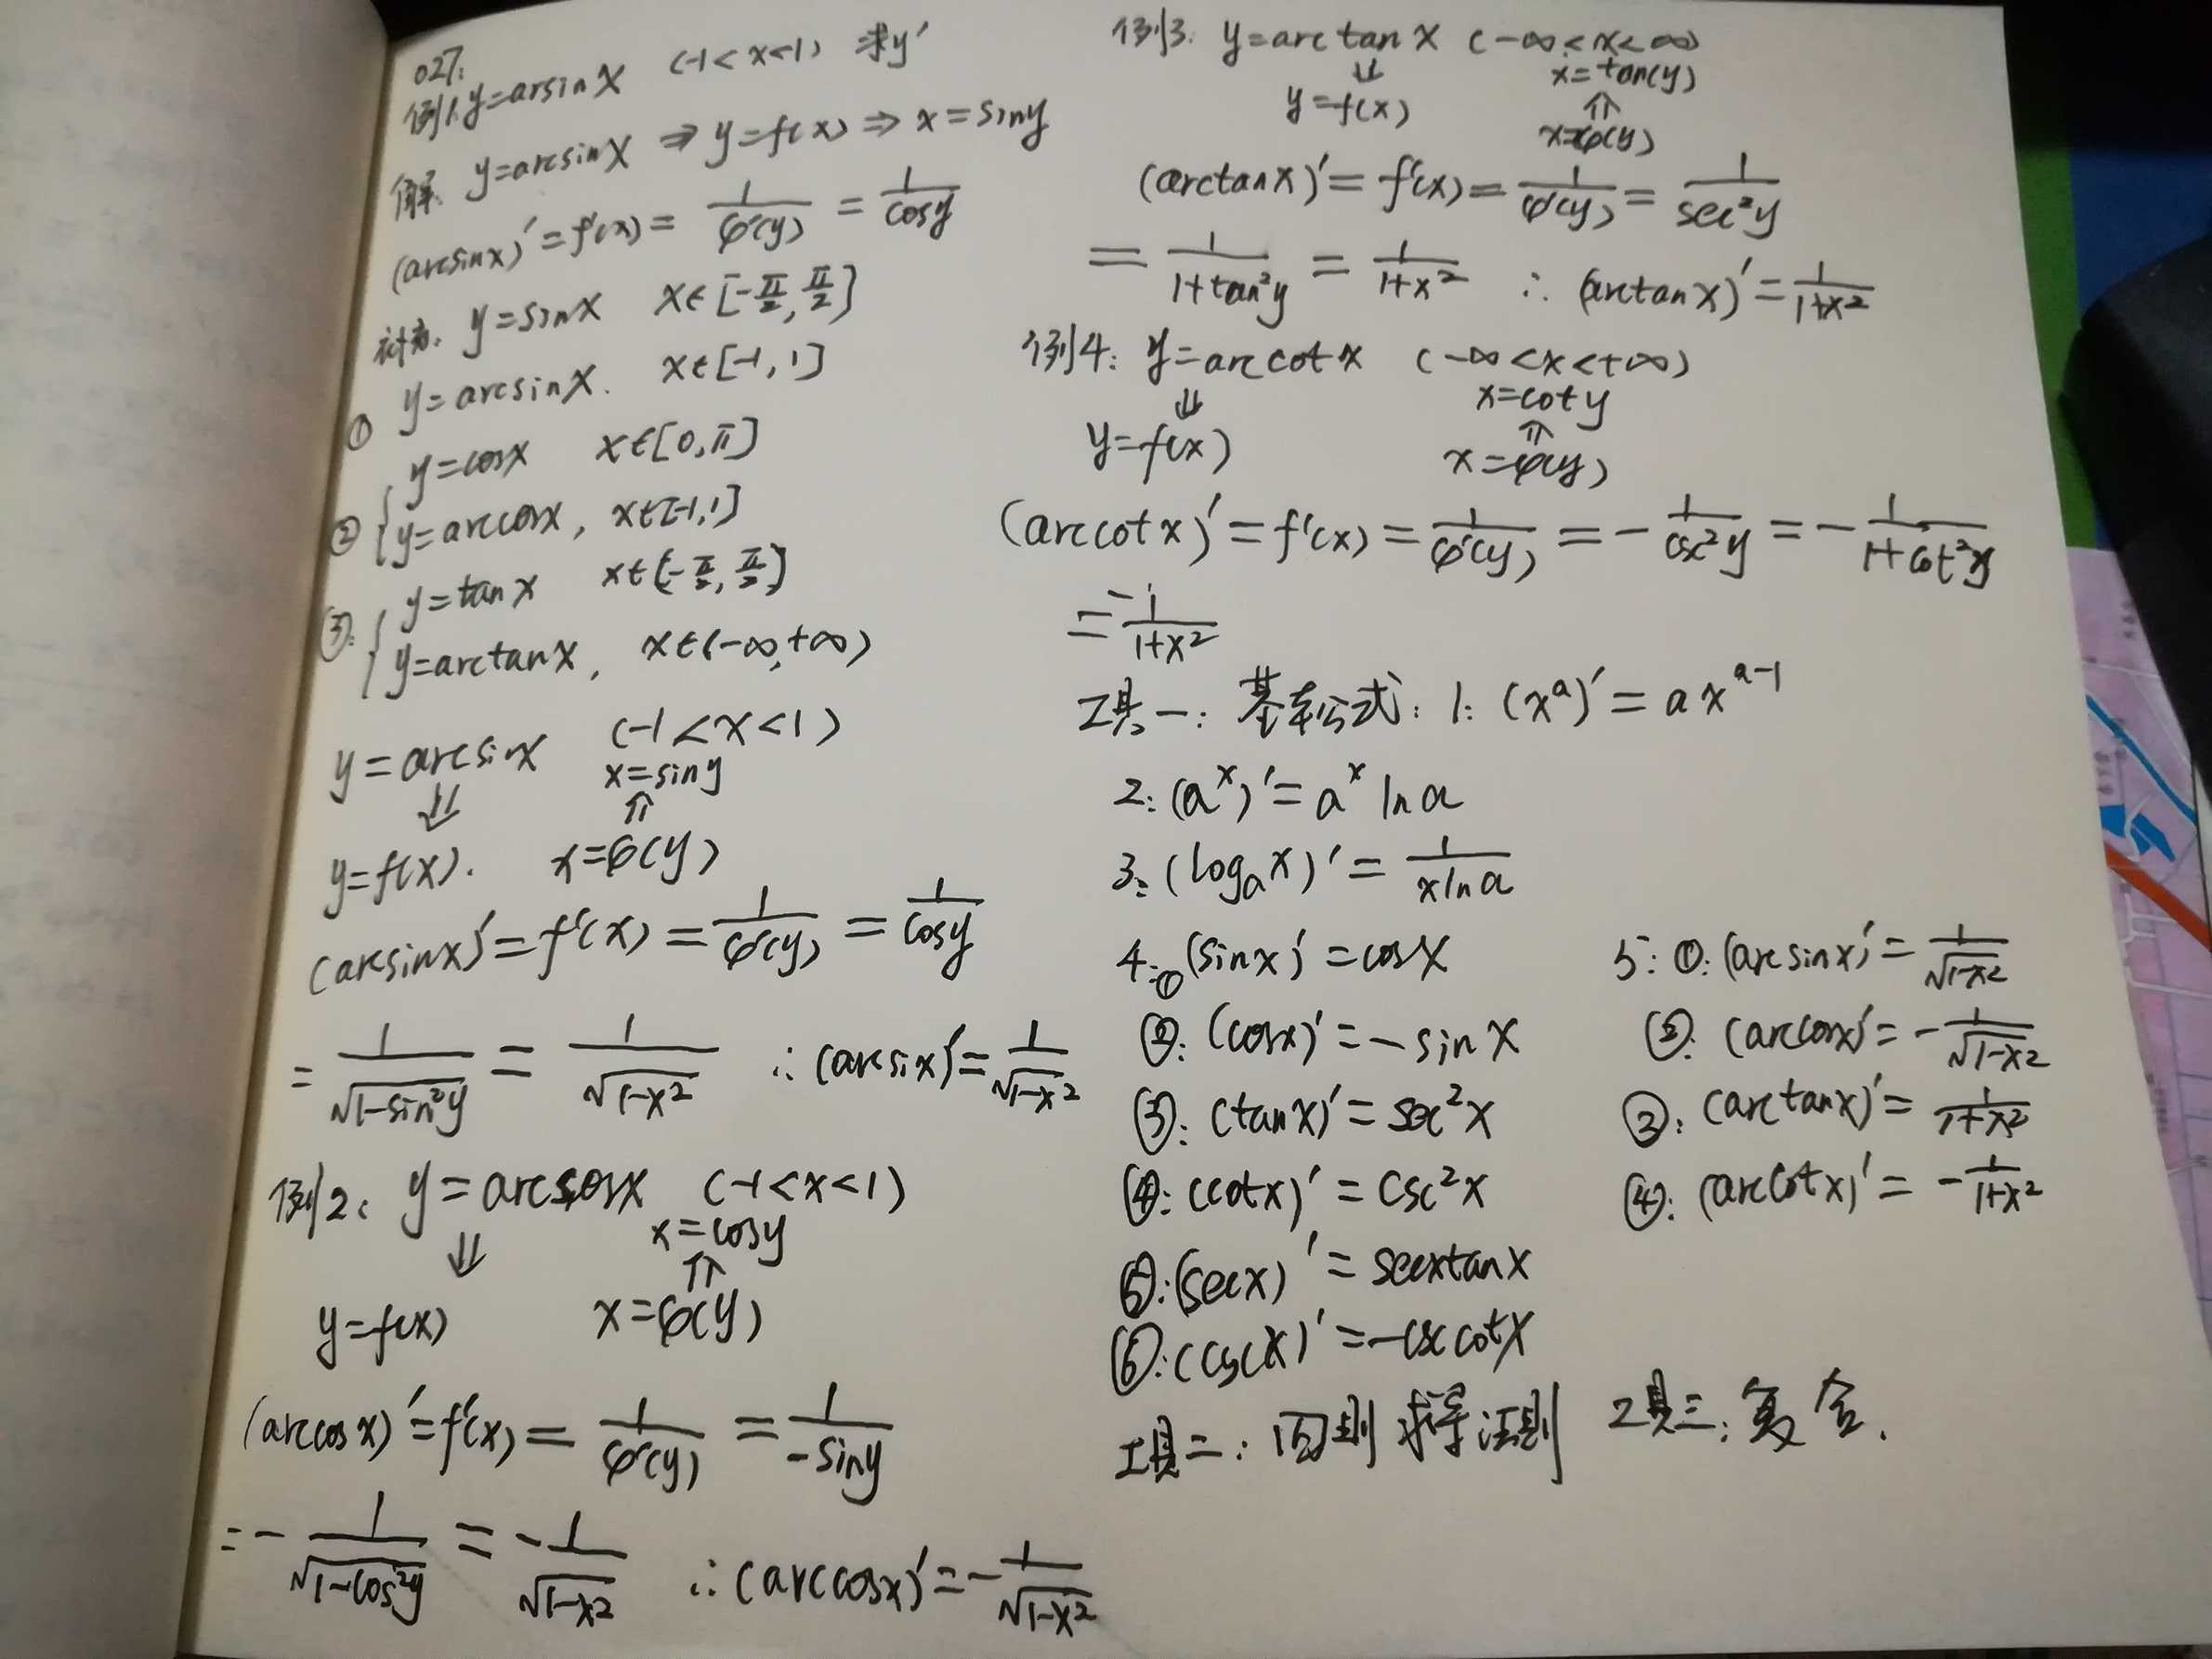 027:
例1: y=arsinx (-1<x<1) 求y′
解: y=arcsinx ⇒ y=f(x) ⇒ x=siny
(arcsinx)′=f′(x)=1/φ′(y)=1/cosy
y=sinx x∈[-π/2, π/2]
① y=arcsinx. x∈[-1,1]
y=cosx x∈[0,π]
② y=arccosx, x∈[-1,1]
y=tanx x∈(-π/2, π/2)
③: y=arctanx, x∈(-∞,+∞)
y=arcsinx (-1<x<1)
⇓ x=siny
⇑
y=f(x). x=φ(y)
(arcsinx)′=f′(x)=1/φ′(y)=1/cosy
=1/√(1-sin²y)=1/√(1-x²) ∴(arcsix)′=1/√(1-x²)
例2: y=arccosx (-1<x<1)
⇓ x=cosy
⇑
y=f(x) x=φ(y)
(arccosx)′=f′(x)=1/φ′(y)=1/-siny
=-1/√(1-cos²y)=-1/√(1-x²) ∴(arccosx)′=-1/√(1-x²)
例3: y=arctanx (-∞<x<∞)
⇓ x=tan(y)
y=f(x) ⇑
x=φ(y)
(arctanx)′=f′(x)=1/φ′(y)=1/sec²y
=1/(1+tan²y)=1/(1+x²) ∴(arctanx)′=1/(1+x²)
例4: y=arccotx (-∞<x<+∞)
⇓ x=coty
y=f(x) ⇑
x=φ(y)
(arccotx)′=f′(x)=1/φ′(y)=-1/csc²y=-1/(1+cot²y)
=-1/(1+x²)
工具一: 基本公式: 1: (xᵃ)′=axᵃ⁻¹
2: (aˣ)′=aˣlna
3: (logₐx)′=1/(xlna)
4: ① (sinx)′=cosx
②: (cosx)′=-sinx
③: (tanx)′=sec²x
④: (cotx)′=csc²x
⑤: (secx)′=secxtanx
⑥: (cscx)′=-csccotx
5: ①: (arcsinx)′=1/√(1-x²)
②: (arccosx)′=-1/√(1-x²)
③: (arctanx)′=1/(1+x²)
④: (arccotx)′=-1/(1+x²)
工具二: 四则求导法则 工具三: 复合.